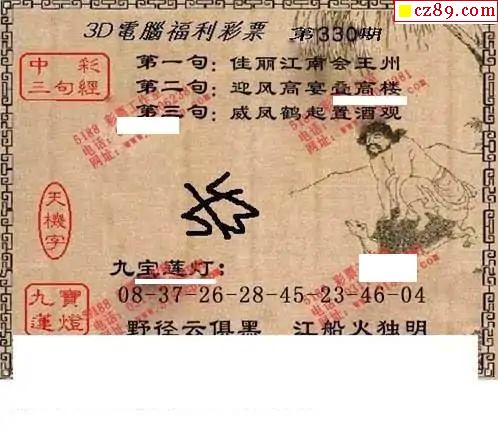 cz89.com
3D電腦福利彩票 第330期
中彩三句經
第一句: 佳丽江南会王州
第二句: 迎风高宴叠高楼
第三句: 威凤鹤起置酒观
天機字
九宝莲灯:
九寶蓮燈
08-37-26-28-45-23-46-04
野径云俱黑 江船火独明